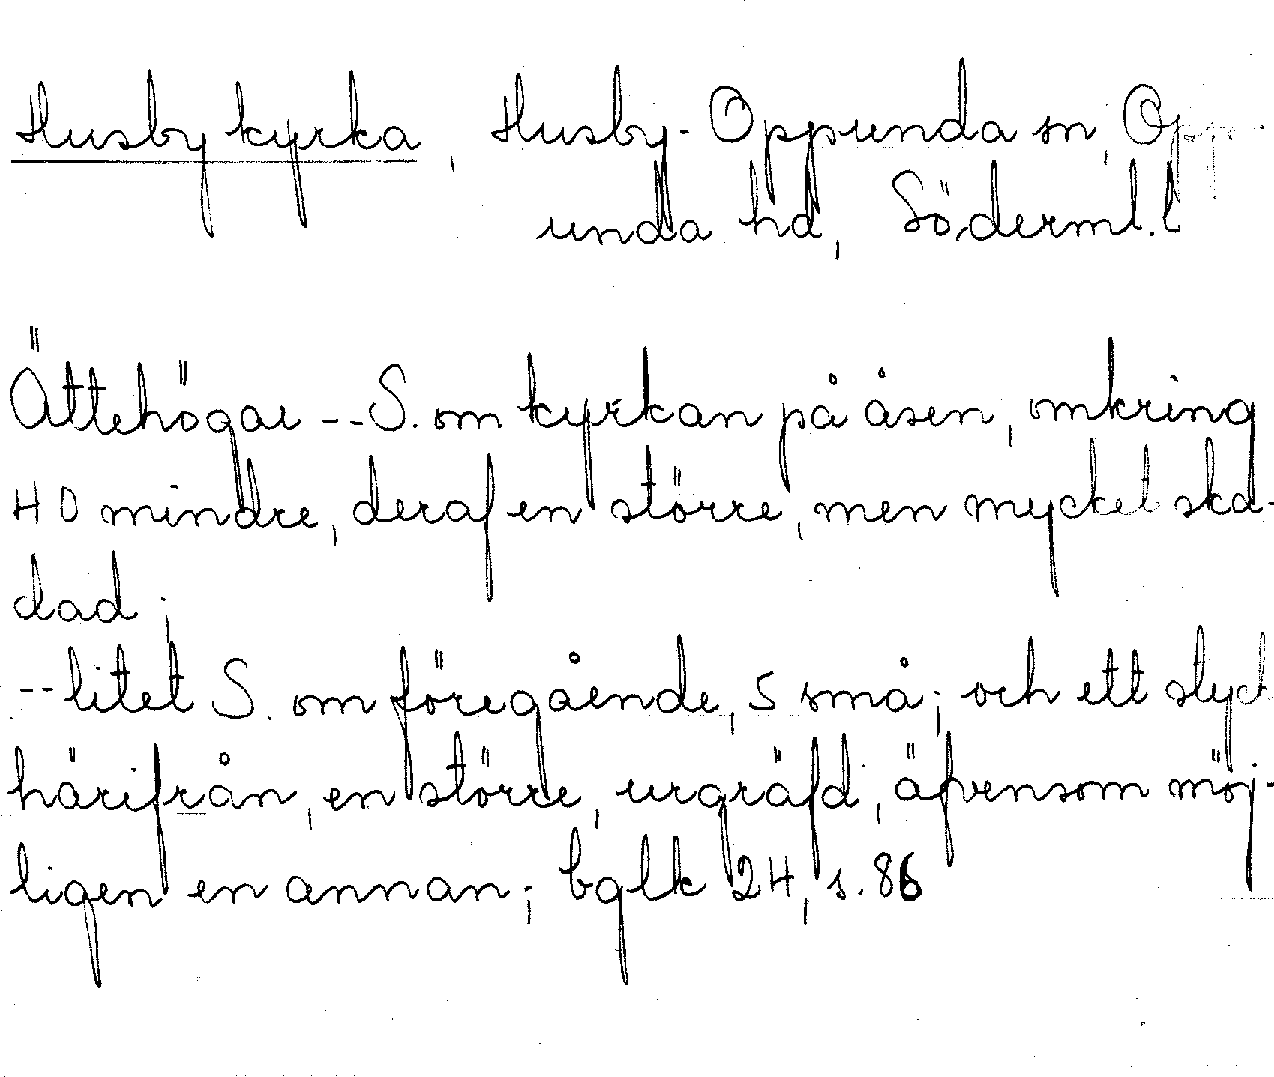 Husby kyrka, Husby-Oppunda sn, Opp-
unda hd, Söderml.l
Ättehögar -- S. om kyrkan på åsen, omkring
40 mindre, deraf en större, men mycket ska-
dad;
-- litet S. om föregående, 5 små; och ett styck
härifrån, en större, urgräfd, äfvensom möj-
ligen en annan; bglk 24, s. 86